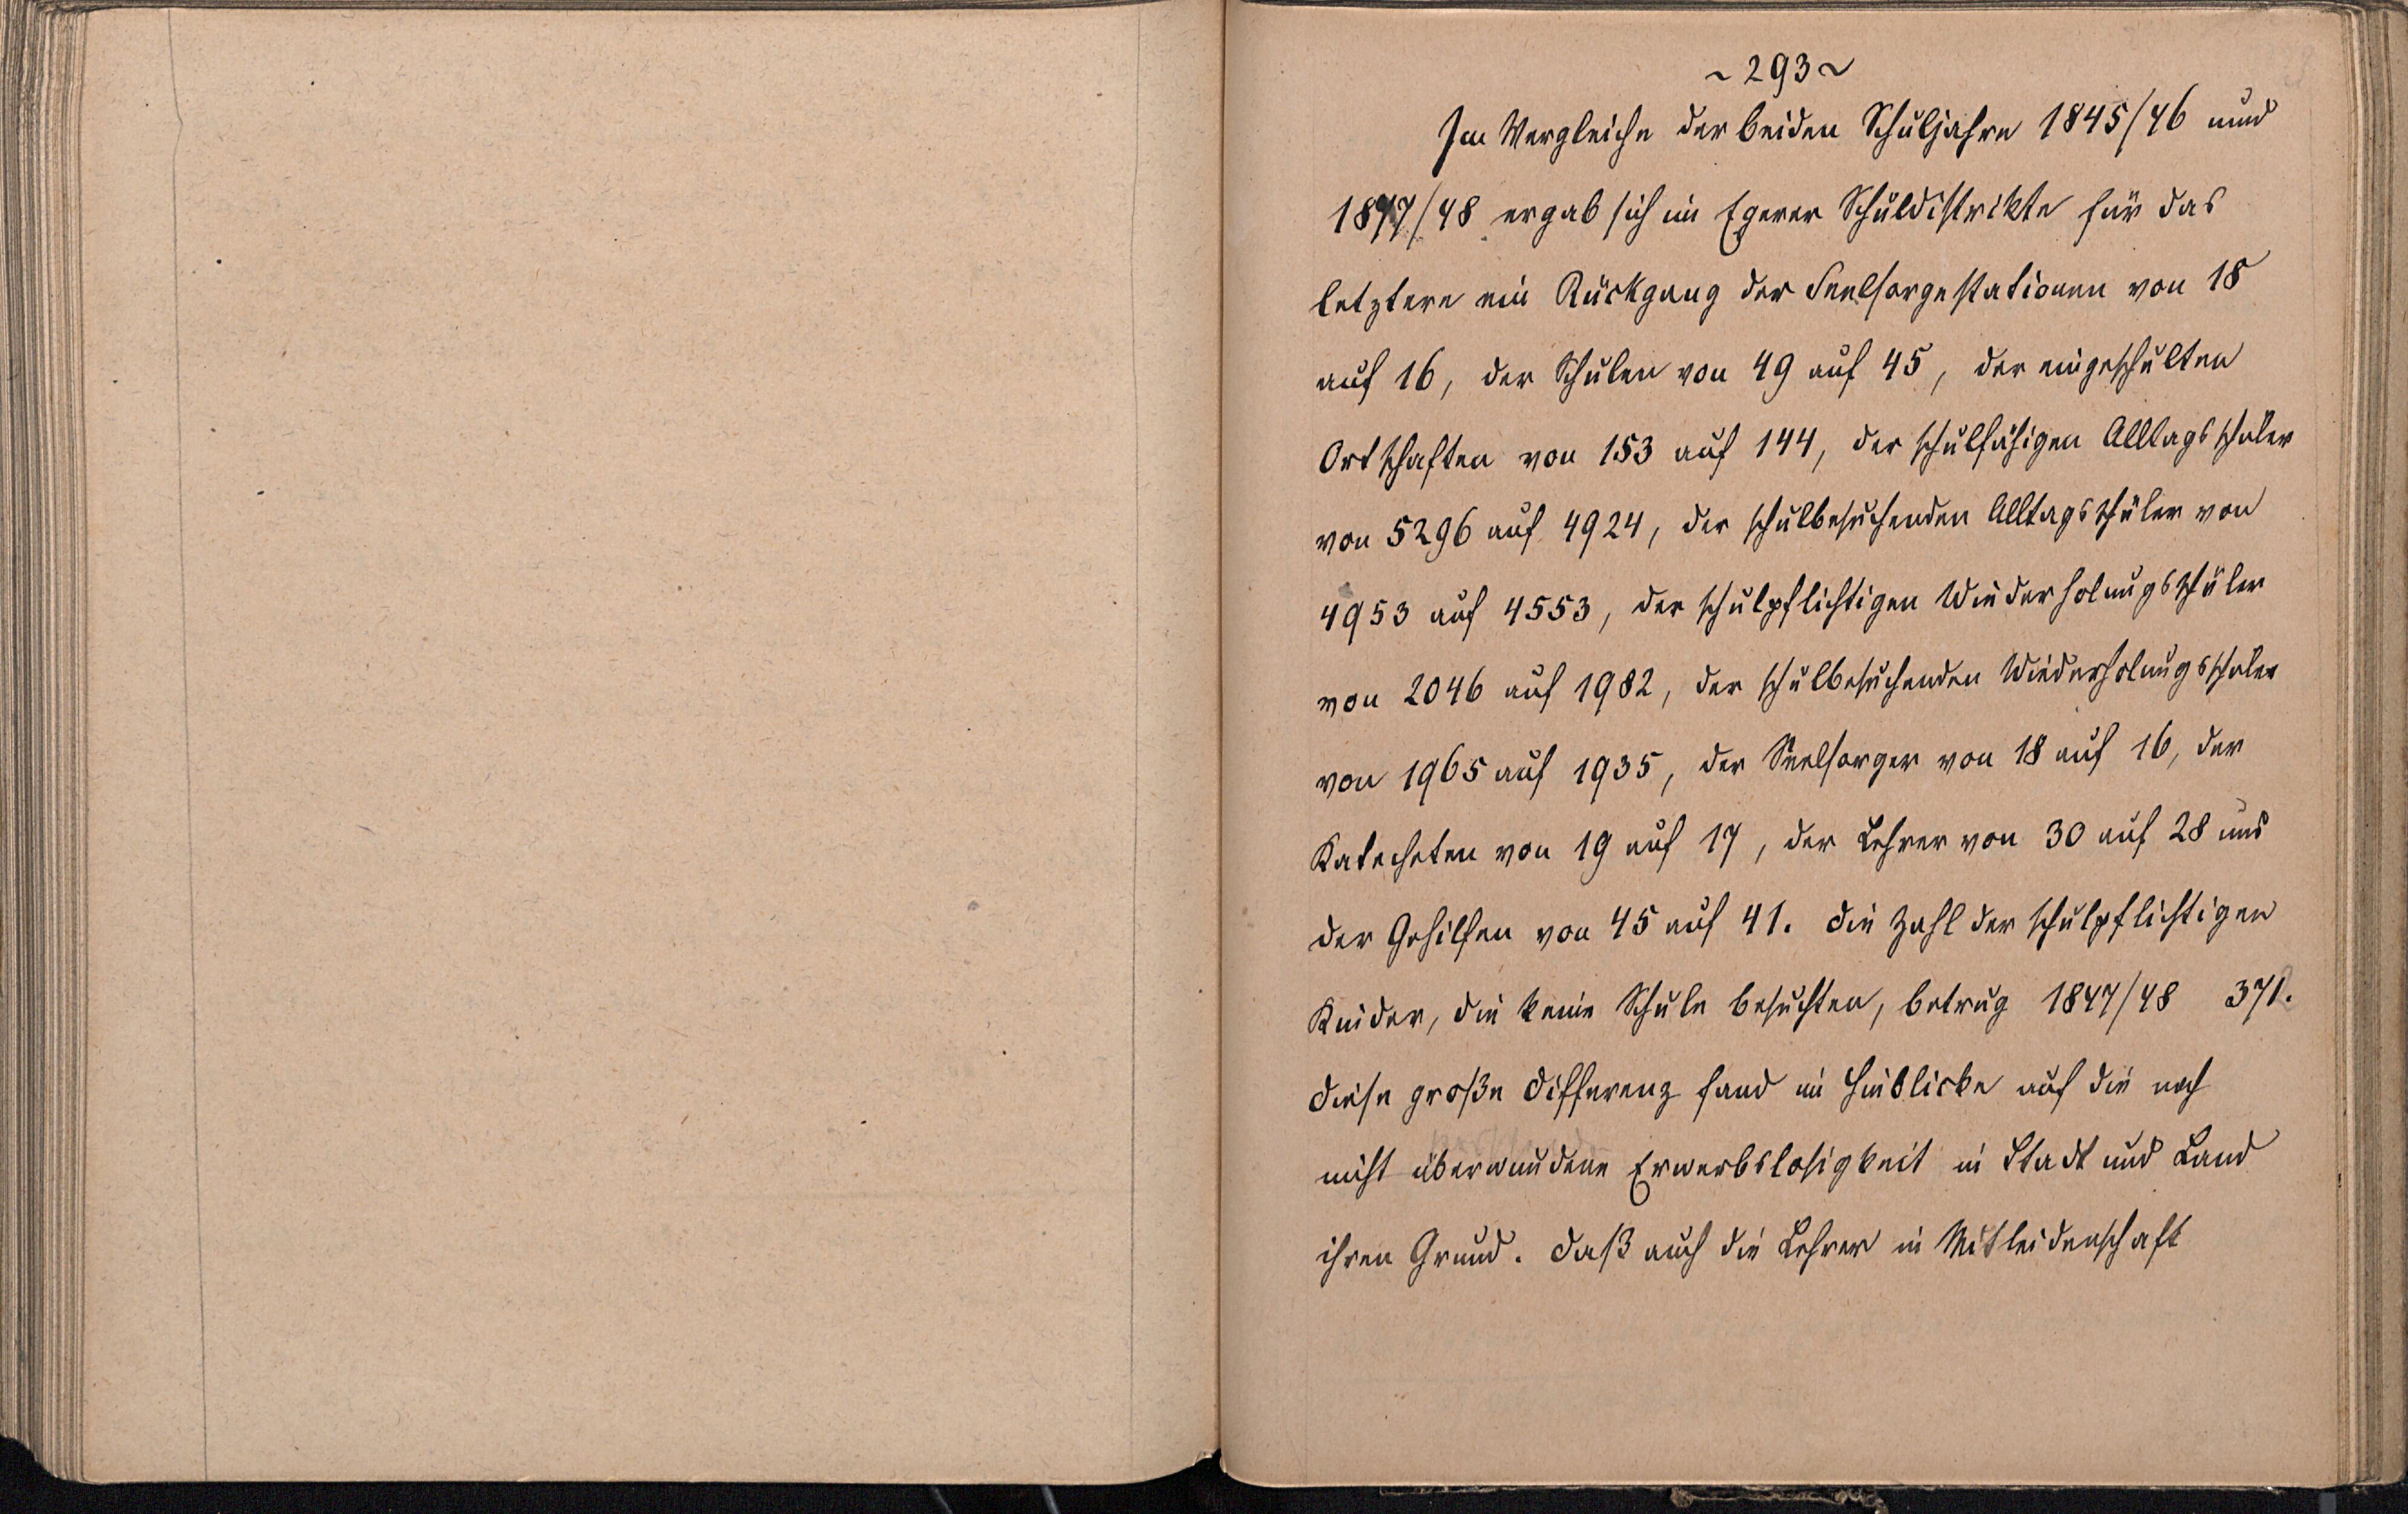 ~ 293 ~
Im Vergleiche der beiden Schuljahre 1845/46 und
1847/48 ergab sich im Egerer Schuldistrikte für das
letztere ein Rückgang der Seelsorgestationen von 18
auf 16, der Schulen von 49 auf 45, der eingeschulten
Ortschaften von 153 auf 144, der schulfähigen Alltagsschüler
von 5296 auf 4924, der schulbesuchenden Alltagsschüler von
4953 auf 4553, der schulpflichtigen Wiederholungsschüler
von 2046 auf 1982, der schulbesuchenden Wiederholungsschüler
von 1965 auf 1935, der Seelsorger von 18 auf 16, der
Katecheten von 19 auf 17, der Lehrer von 30 auf 28 und
der Gehilfen von 45 auf 41. Die Zahl der schulpflichtigen
Kinder, die keine Schule besuchten, betrug 1847/48 371.
Diese große Differenz fand im Hinblicke auf die noch
nicht überwundene Erwerbslosigkeit in Stadt und Land
ihren Grund. Daß auch die Lehrer in Mitleidenschaft